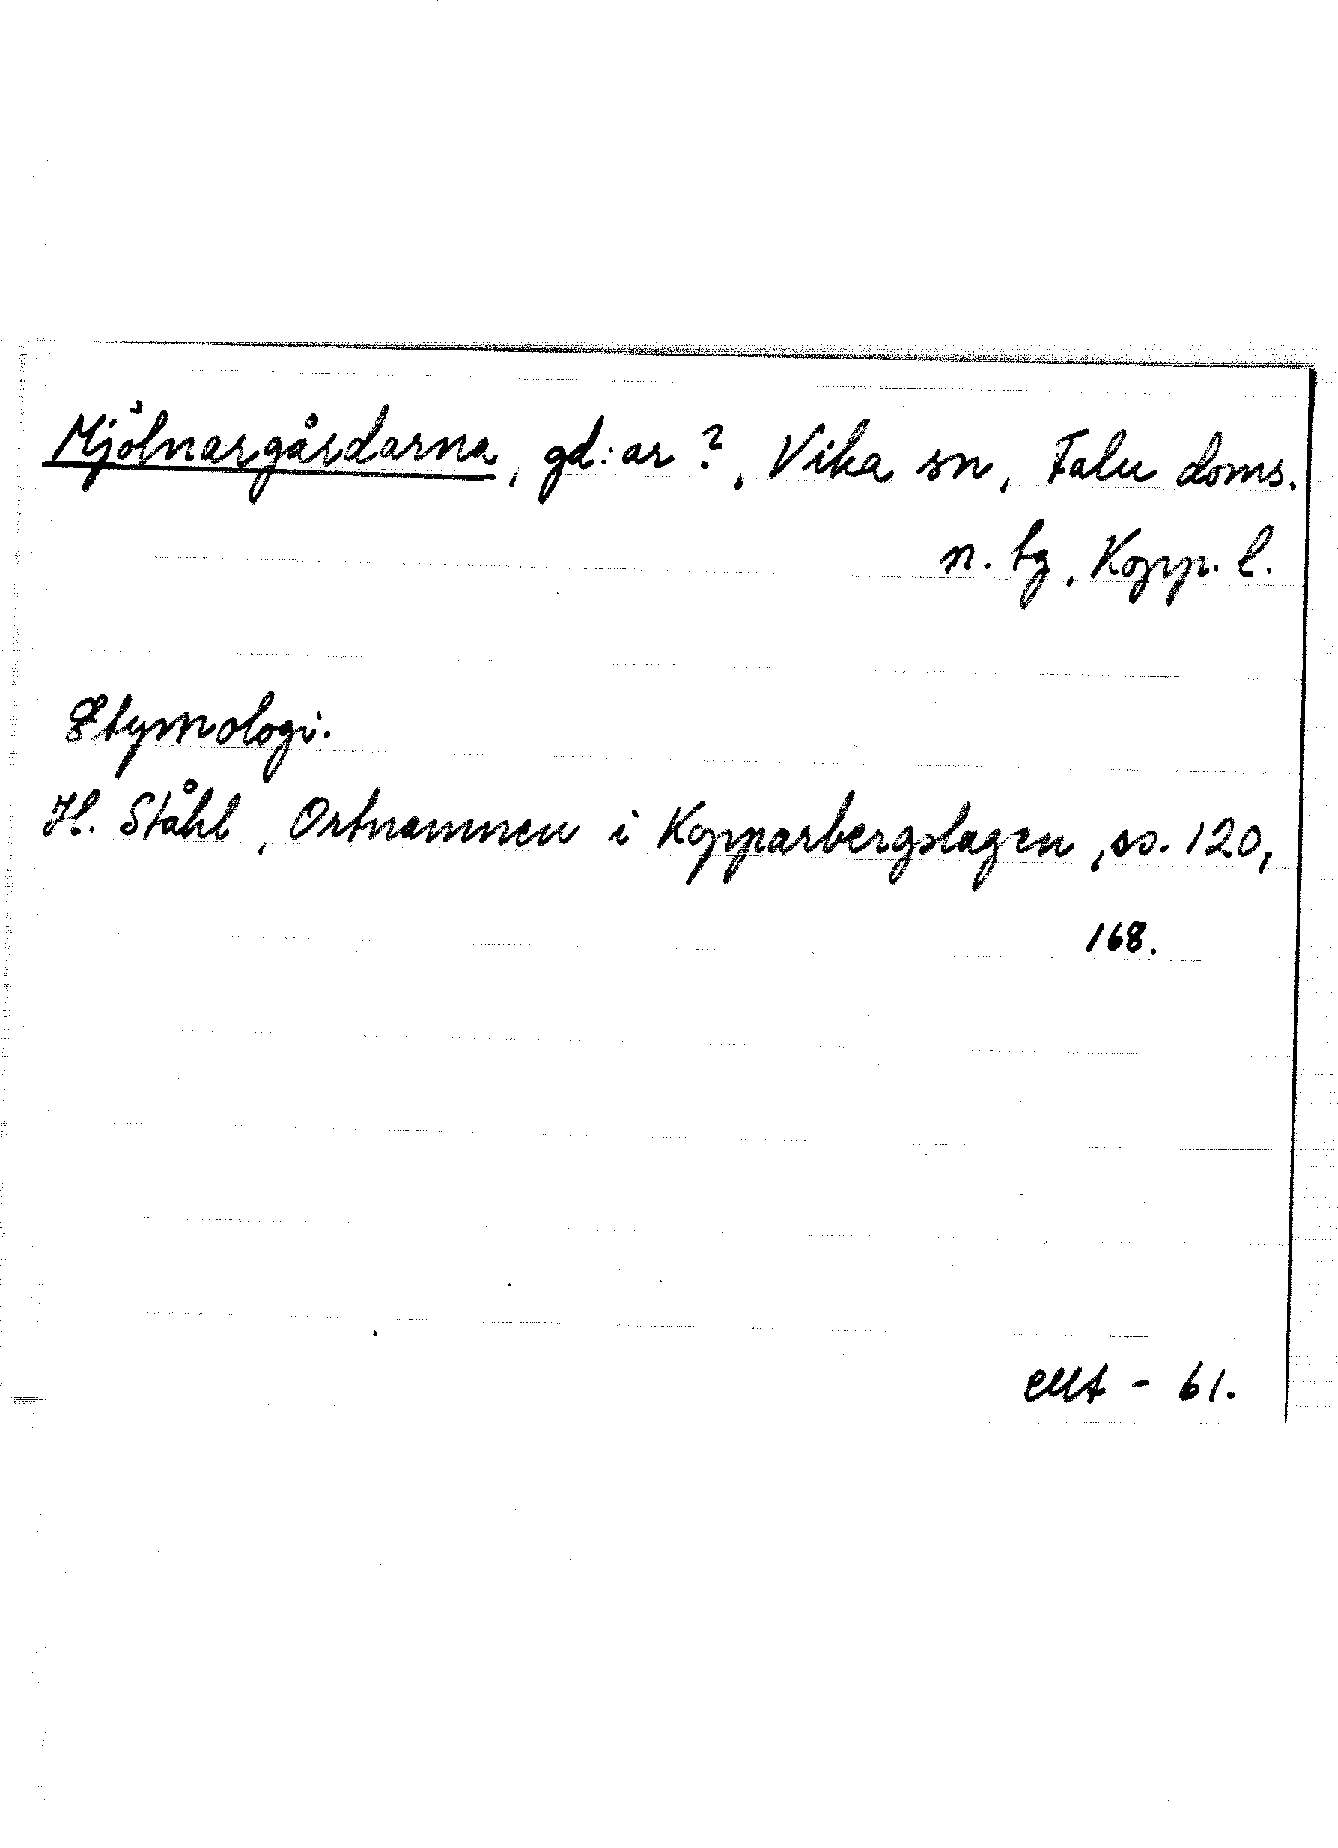 Mjölnargårdarna, gd:ar ?, Vika sn, Falu doms.
n. tg, Kopp. l.
Etymologi.
H. Ståhl, Ortnamnen i Kopparbergslagen, ss. 120,
168.
- 61.